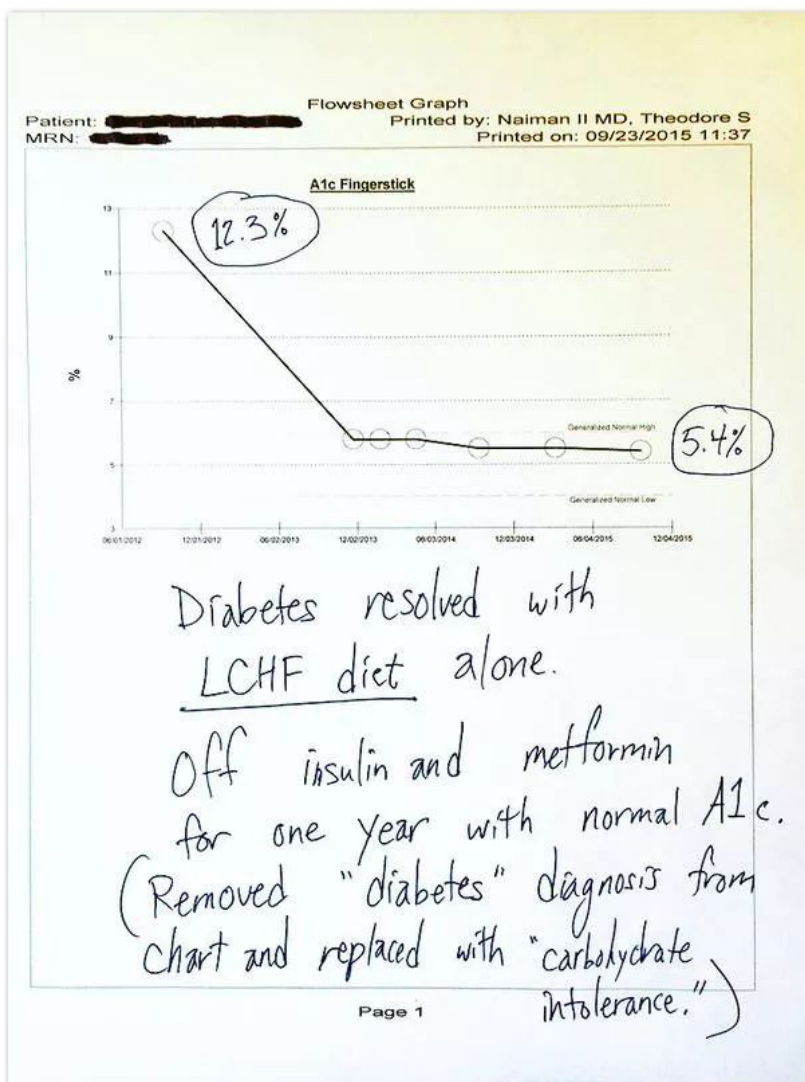 Flowsheet Graph
Patient: Printed by: Naiman II MD, Theodore S
MRN: Printed on: 09/23/2015 11:37
A1c Fingerstick
13
12.3%
11
9
%
7
Generalized Normal High
5.4%
5
Generalized Normal Low
3
06/01/2012 12/01/2012 06/02/2013 12/02/2013 06/03/2014 12/03/2014 06/04/2015 12/04/2015
Diabetes resolved with
LCHF diet alone.
Off insulin and metformin
for one year with normal A1c.
(Removed "diabetes" diagnosis from
chart and replaced with "carbohydrate
intolerance.")
Page 1